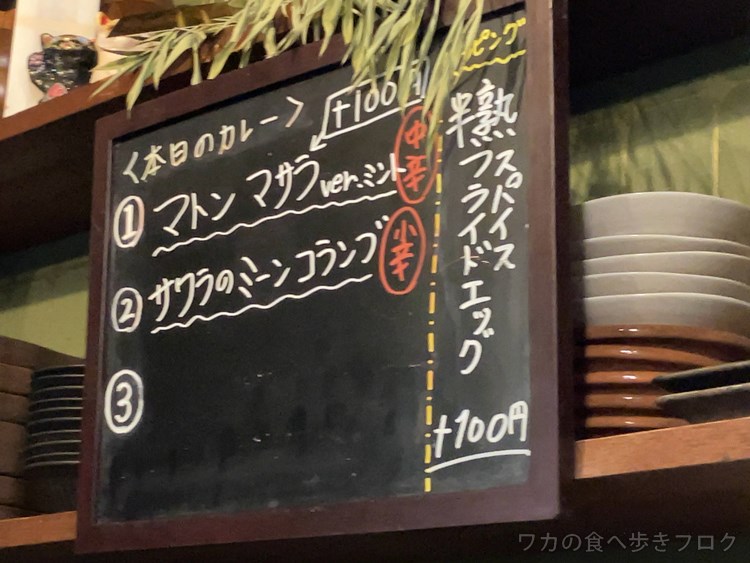 〈本日のカレー〉
+100円
① マトン マサラ ver.ミント
中辛
② サワラのミーン コランブ
小辛
③
ピング
半熟スパイス
フライドエッグ
+100円
ワカの食べ歩きブログ